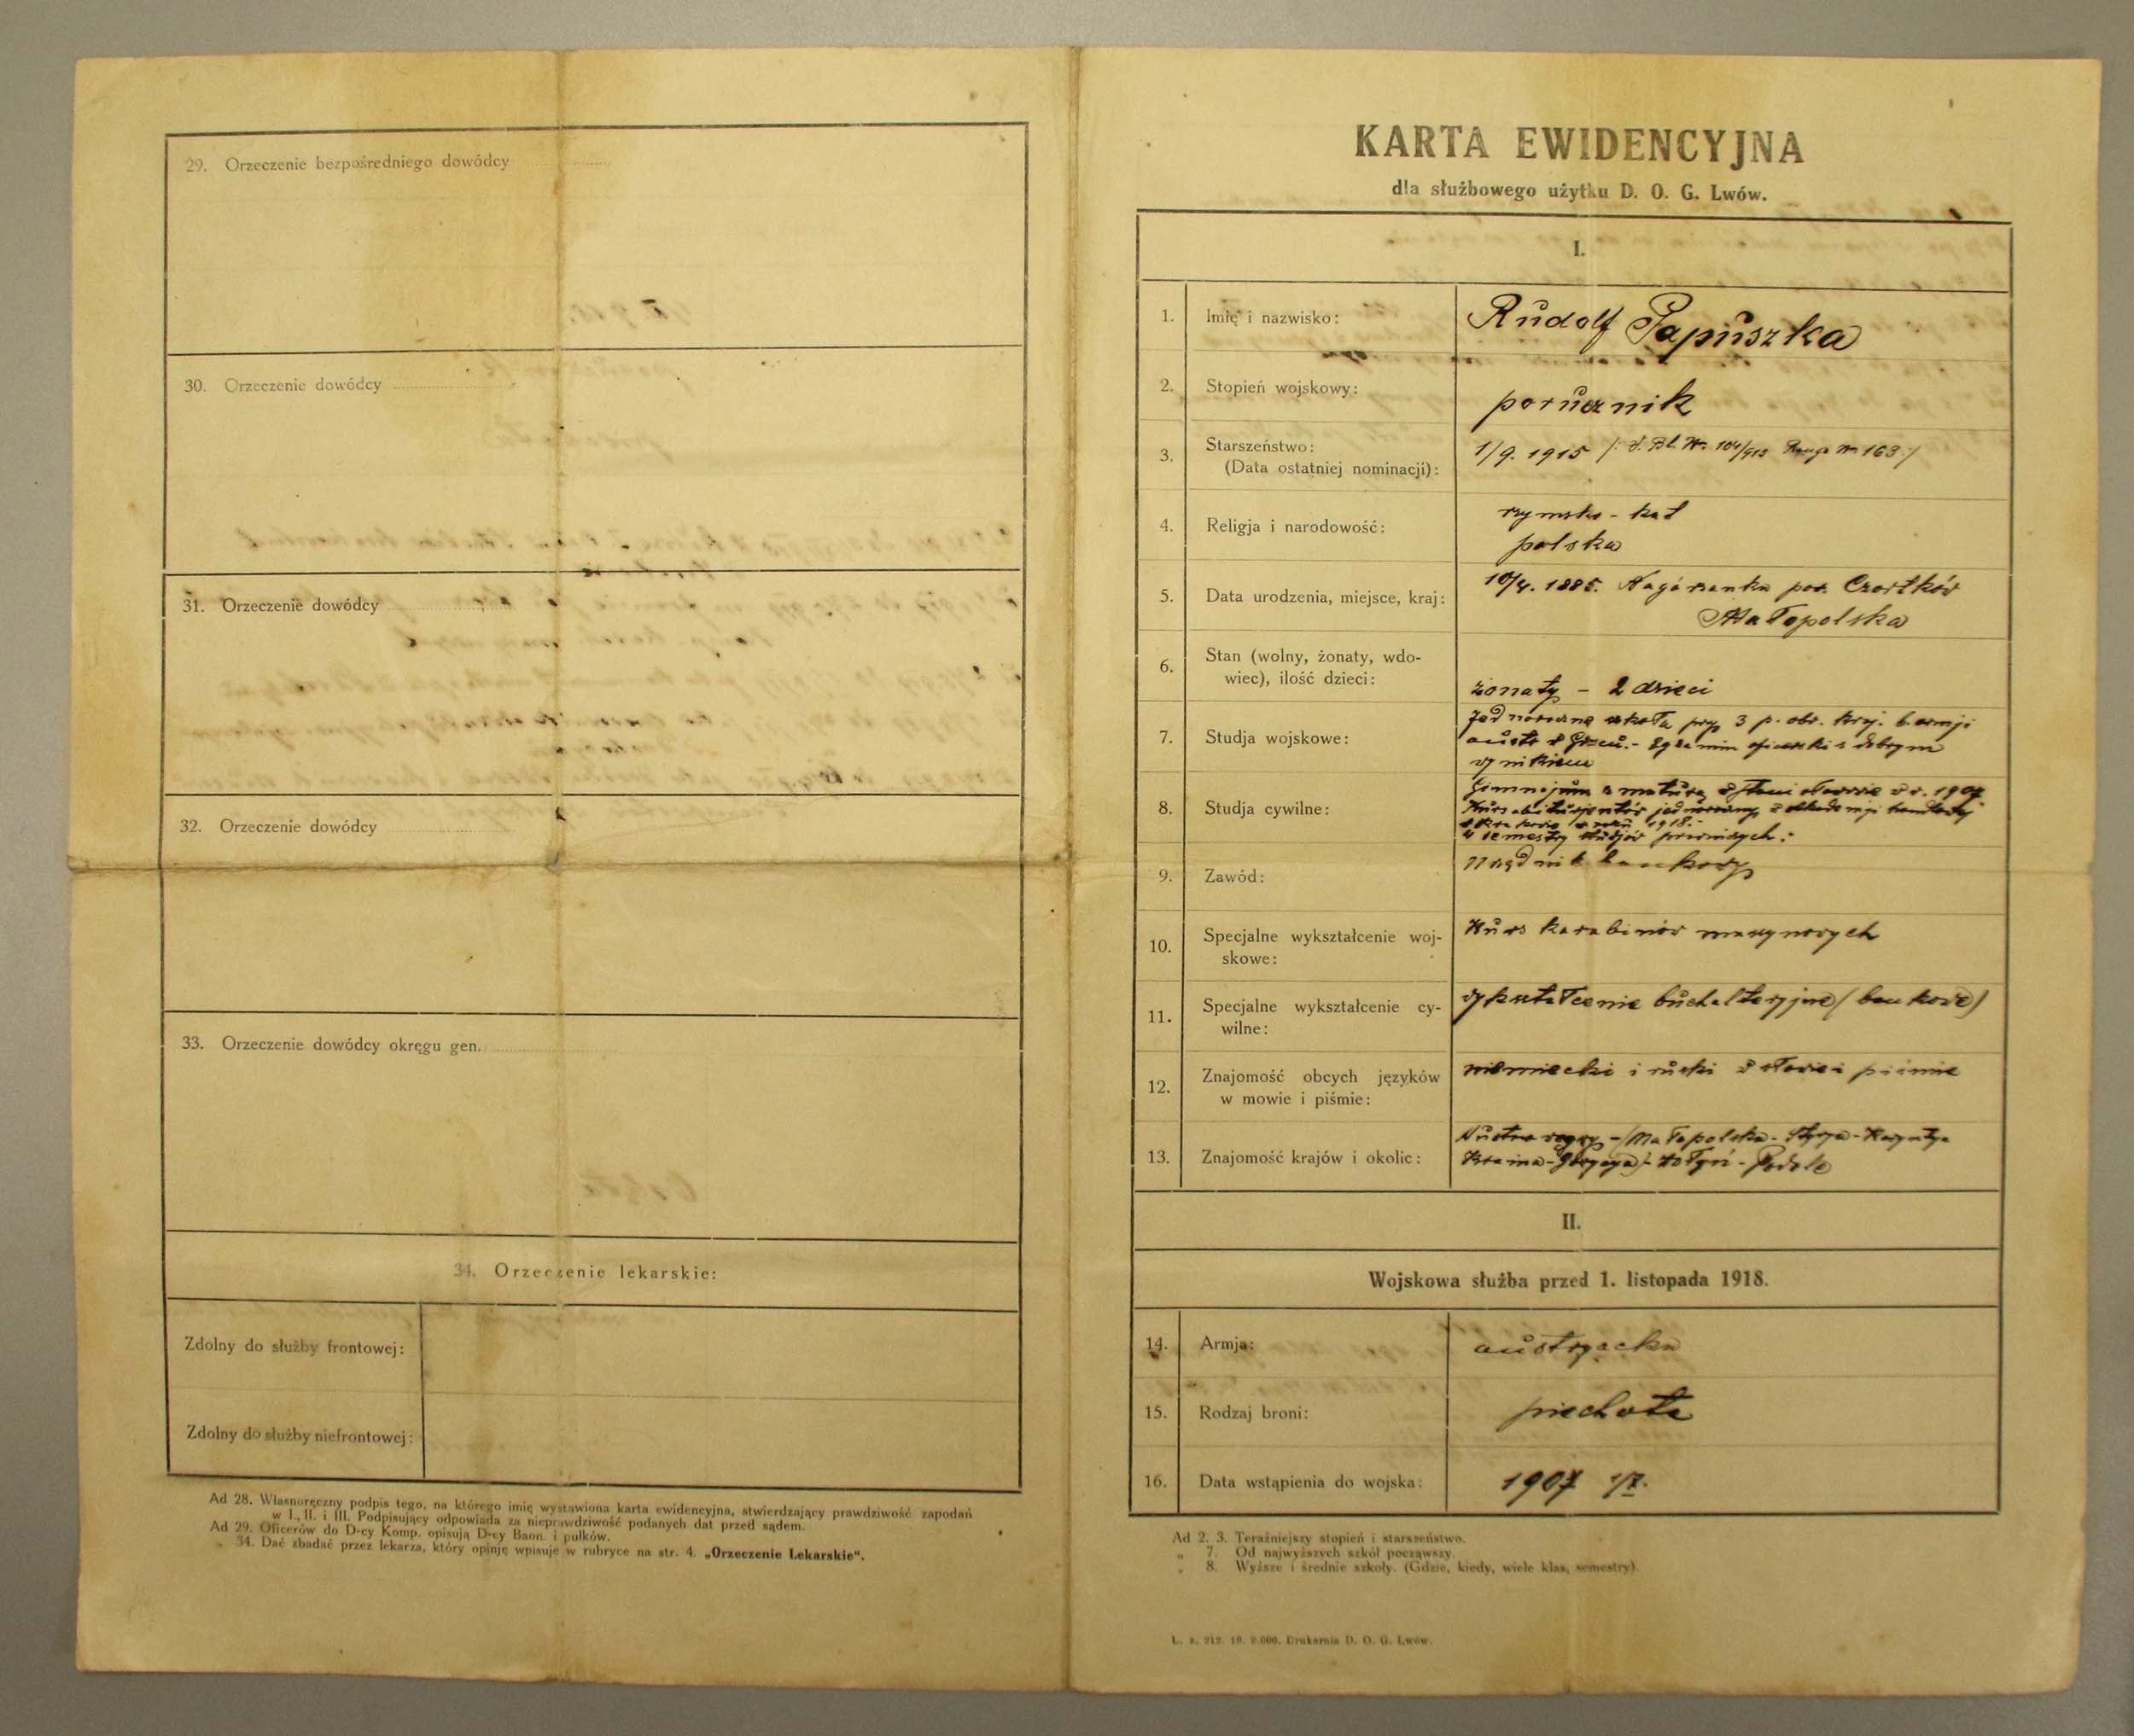 29. Orzeczenie bezpośredniego dowódcy
30. Orzeczenie dowódcy
31. Orzeczenie dowódcy
32. Orzeczenie dowódcy
33. Orzeczenie dowódcy okręgu gen.
34. Orzeczenie lekarskie:
Zdolny do służby frontowej:
Zdolny do służby niefrontowej:
Ad 28. Własnoręczny podpis tego, na którego imię wystawiona karta ewidencyjna, stwierdzający prawdziwość zapodań
w I., II. i III. Podpisujący odpowiada za nieprawdziwość podanych dat przed sądem.
Ad 29. Oficerów do D-cy Komp. opisują D-cy Baon. i pułków.
„ 34. Dać zbadać przez lekarza, który opinję wpisuje w rubryce na str. 4. „Orzeczenie Lekarskie“.
KARTA EWIDENCYJNA
dla służbowego użytku D. O. G. Lwów.
I.
1. Imię i nazwisko: Rudolf Papuszka
2. Stopień wojskowy: porucznik
3. Starszeństwo:
(Data ostatniej nominacji): 1/9. 1915
4. Religja i narodowość: rzymsko-kat
polska
5. Data urodzenia, miejsce, kraj: 10/4. 1885. Nagórzanka pow. Czortków
Małopolska
6. Stan (wolny, żonaty, wdo-
wiec), ilość dzieci: żonaty - 2 dzieci
7. Studja wojskowe: Jednoroczna szkoła przy 3 p. obr. kraj. b. armji
austr w Grazu. - Egzamin oficerski z dobrym
wynikiem
8. Studja cywilne: Gimnazjum z maturą w Stanisławowie w r. 1907
Kurs abiturjentów jednoroczny z akademji handlowej
w Krakowie w roku 1918.
4 semestry studjów prawniczych.
9. Zawód: urzędnik bankowy
10. Specjalne wykształcenie woj-
skowe: Kurs karabinów maszynowych
11. Specjalne wykształcenie cy-
wilne: wykształcenie buchalteryjne (bankowe)
12. Znajomość obcych języków
w mowie i piśmie: niemiecki i ruski w słowie i piśmie
13. Znajomość krajów i okolic: Austro-węgry - (Małopolska - Styrja - Karyntya
Kraina - Gorycya) - Wołyń - Podole
II.
Wojskowa służba przed 1. listopada 1918.
14. Armja: austryacka
15. Rodzaj broni: piechota
16. Data wstąpienia do wojska: 1907 1/X.
Ad 2. 3. Teraźniejszy stopień i starszeństwo.
„ 7. Od najwyższych szkół począwszy.
„ 8. Wyższe i średnie szkoły. (Gdzie, kiedy, wiele klas, semestry).
L. z. 212. 19. 2.000. Drukarnia D. O. G. Lwów.